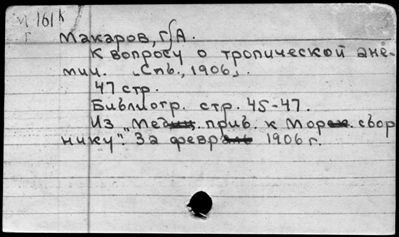 М 161к
Макаров, Г. А.
К вопросу о тропической ане-
мии. Спб., 1906.
47 стр.
Библиогр. стр. 45-47.
Из "Медиц. приб. к Морск. сбор
нику". За февраль 1906 г.